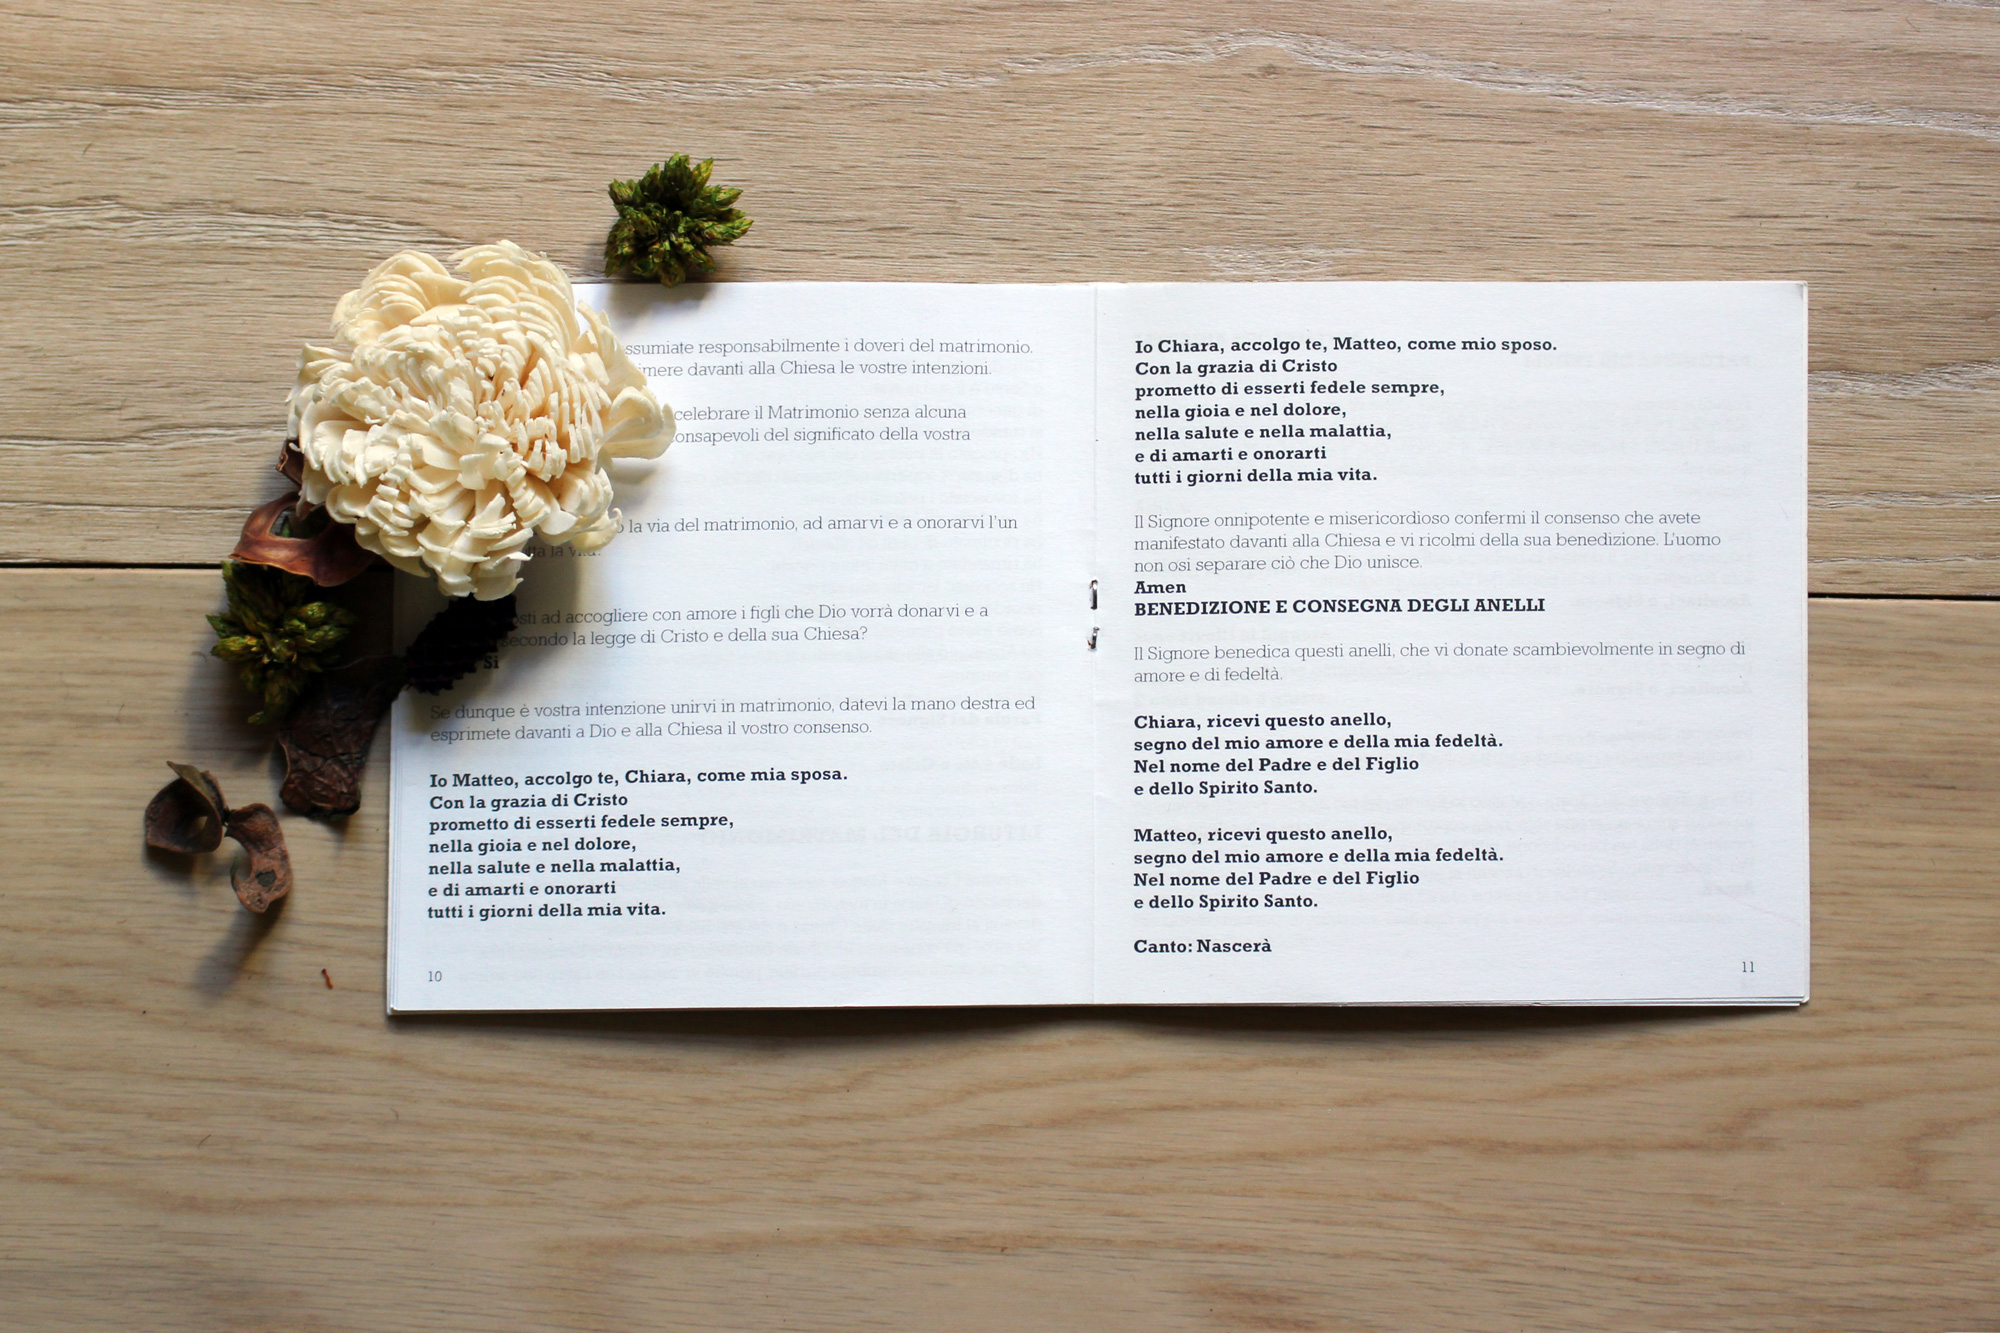 responsabilmente i doveri del matrimonio.
davanti alla Chiesa le vostre intenzioni.
celebrare il Matrimonio senza alcuna
del significato della vostra
la via del matrimonio, ad amarvi e a onorarvi l'un
la vita?
ad accogliere con amore i figli che Dio vorrà donarvi e a
secondo la legge di Cristo e della sua Chiesa?
Si
Se dunque è vostra intenzione unirvi in matrimonio, datevi la mano destra ed
esprimete davanti a Dio e alla Chiesa il vostro consenso.
Io Matteo, accolgo te, Chiara, come mia sposa.
Con la grazia di Cristo
prometto di esserti fedele sempre,
nella gioia e nel dolore,
nella salute e nella malattia,
e di amarti e onorarti
tutti i giorni della mia vita.
10
Io Chiara, accolgo te, Matteo, come mio sposo.
Con la grazia di Cristo
prometto di esserti fedele sempre,
nella gioia e nel dolore,
nella salute e nella malattia,
e di amarti e onorarti
tutti i giorni della mia vita.
Il Signore onnipotente e misericordioso confermi il consenso che avete
manifestato davanti alla Chiesa e vi ricolmi della sua benedizione. L'uomo
non osi separare ciò che Dio unisce.
Amen
BENEDIZIONE E CONSEGNA DEGLI ANELLI
Il Signore benedica questi anelli, che vi donate scambievolmente in segno di
amore e di fedeltà.
Chiara, ricevi questo anello,
segno del mio amore e della mia fedeltà.
Nel nome del Padre e del Figlio
e dello Spirito Santo.
Matteo, ricevi questo anello,
segno del mio amore e della mia fedeltà.
Nel nome del Padre e del Figlio
e dello Spirito Santo.
Canto: Nascerà
11